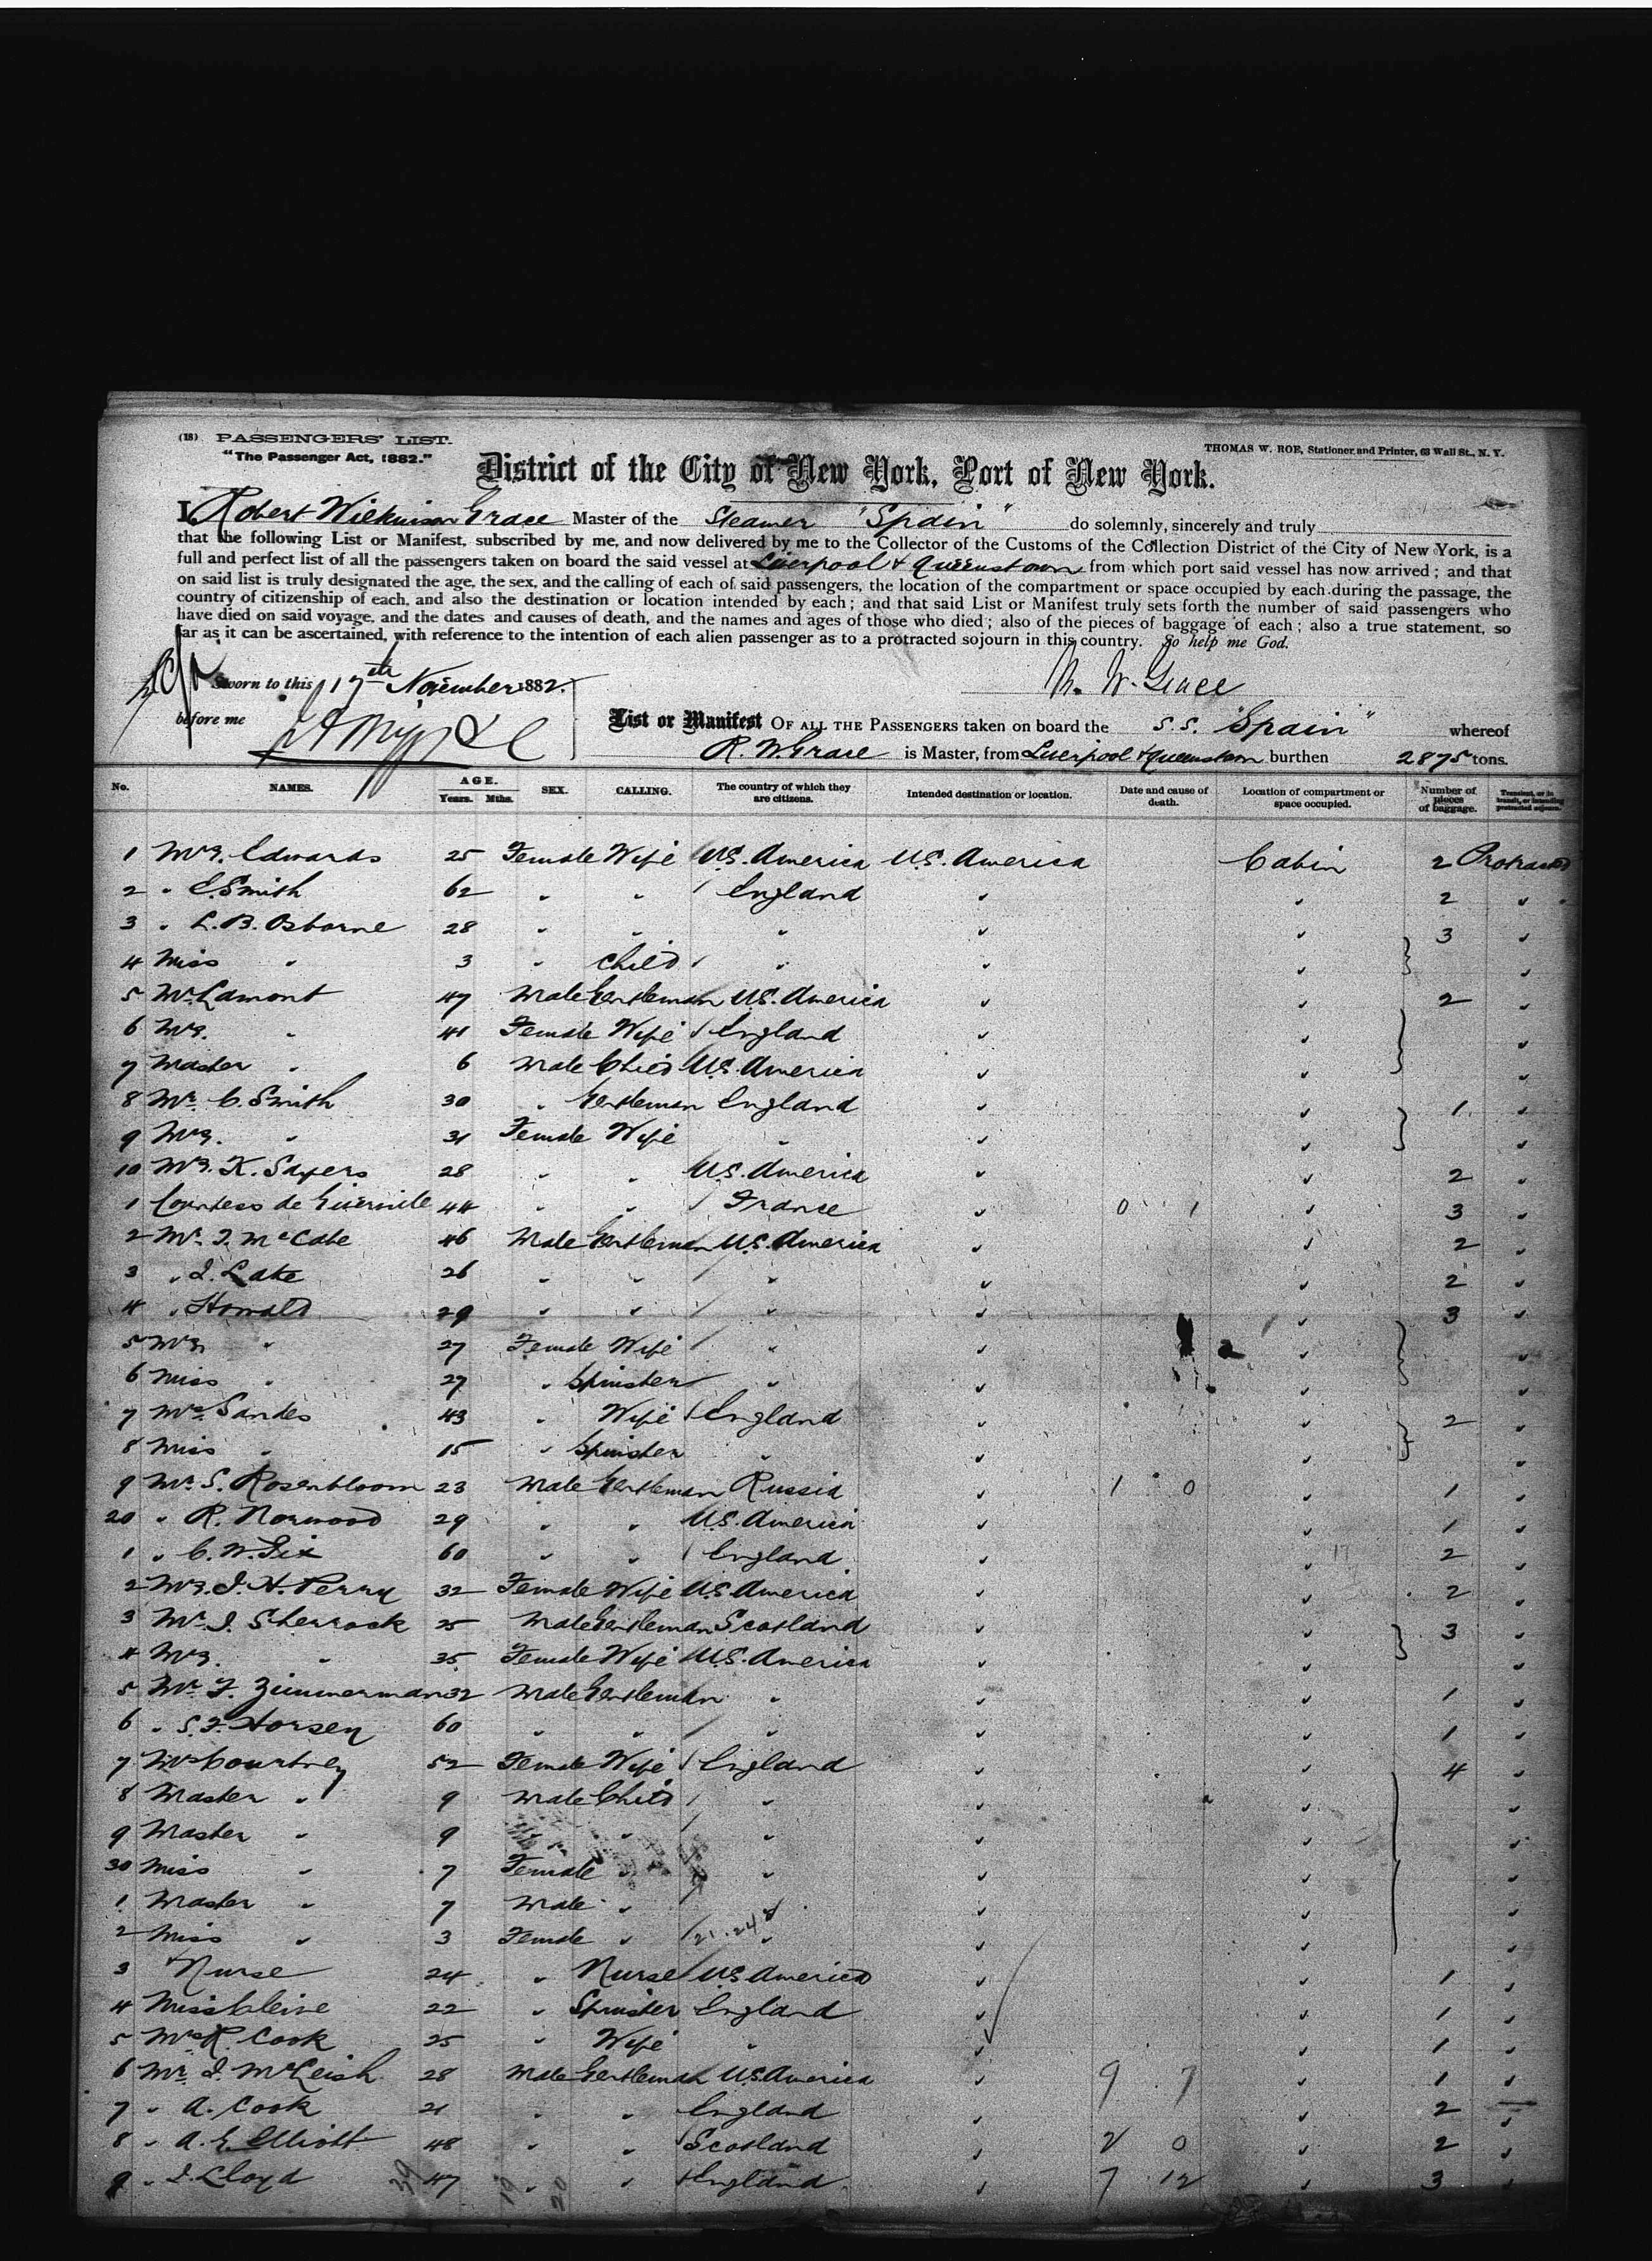 (18) PASSENGERS' LIST.
"The Passenger Act, 1882."
THOMAS W. ROE, Stationer and Printer, 63 Wall St., N. Y.
District of the City of New York, Port of New York.
I, Robert Wilkinson Grace Master of the Steamer "Spain" do solemnly, sincerely and truly
that the following List or Manifest, subscribed by me, and now delivered by me to the Collector of the Customs of the Collection District of the City of New York, is a
full and perfect list of all the passengers taken on board the said vessel at Liverpool & Queenstown from which port said vessel has now arrived; and that
on said list is truly designated the age, the sex, and the calling of each of said passengers, the location of the compartment or space occupied by each during the passage, the
country of citizenship of each, and also the destination or location intended by each; and that said List or Manifest truly sets forth the number of said passengers who
have died on said voyage, and the dates and causes of death, and the names and ages of those who died; also of the pieces of baggage of each; also a true statement, so
far as it can be ascertained, with reference to the intention of each alien passenger as to a protracted sojourn in this country. So help me God.
Sworn to this 17th November 1882. R. W. Grace
before me
List or Manifest OF ALL THE PASSENGERS taken on board the S.S. "Spain" whereof
R. W. Grace is Master, from Liverpool & Queenstown burthen 2875 tons.
No. NAMES. AGE. Years. Mths. SEX. CALLING. The country of which they are citizens. Intended destination or location. Date and cause of death. Location of compartment or space occupied. Number of pieces of baggage. Transient, or in transit, or intending protracted sojourn.
1 Mrs. Edwards 25 Female Wife U.S. America U.S. America Cabin 2 Protracted
2 " E. Smith 62 " " England " " 2 "
3 " L. B. Osborne 28 " " " " " 3 "
4 Miss " 3 " Child " " " "
5 Mr. Lamont 47 Male Gentleman U.S. America " " 2 "
6 Mrs. " 41 Female Wife England " " "
7 Master " 6 Male Child U.S. America " " "
8 Mr. C. Smith 30 " Gentleman England " " 1 "
9 Mrs. " 31 Female Wife " " " "
10 Mrs. K. Sayers 28 " " U.S. America " " 2 "
1 Countess de 44 " " France " 0 1 " 3 "
2 Mr. J. McCabe 46 Male Gentleman U.S. America " " 2 "
3 " J. Lake 26 " " " " " 2 "
4 " Howald 29 " " " " " 3 "
5 Mrs. " 27 Female Wife " " " "
6 Miss " 27 " Spinster " " " "
7 Mrs. Sandes 43 " Wife England " " 2 "
8 Miss " 15 " Spinster " " " "
9 Mr. S. Rosenbloom 23 Male Gentleman Russia " 1 0 " 1 "
20 " R. Norwood 29 " " U.S. America " " 1 "
1 " C. W. 60 " " England " 17 " 2 "
2 Mrs. J. H. Perry 32 Female Wife U.S. America " " 2 "
3 Mr. J. Sherrock 25 Male Gentleman Scotland " " 3 "
4 Mrs. " 35 Female Wife U.S. America " " "
5 Mr. F. Zimmerman 32 Male Gentleman " " " 1 "
6 " S. F. Horsey 60 " " " " " 1 "
7 Mrs Courtney 52 Female Wife England " " 4 "
8 Master " 9 Male Child " " " "
9 Master " 9 " " " " " "
30 Miss " 7 Female " " " " "
1 Master " 7 Male " " " " "
2 Miss " 3 Female " " " " "
3 Nurse 24 " Nurse U.S. America " " 1 "
4 Miss Cleire 22 " Spinster England " " 1 "
5 Mrs R. Cook 25 " Wife " " " 1 "
6 Mr. J. McLeish 28 Male Gentleman U.S. America " 9 7 " 1 "
7 " A. Cook 21 " " England " " 2 "
8 " A. G. Elliott 48 " " Scotland " 2 0 " 2 "
9 " J. Lloyd 39 47 19 " 20 " England " 7 12 " 3 "